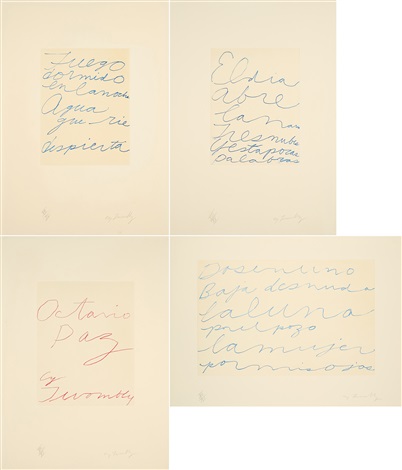 Fuego
dormido
en la noche
Agua
que rie
despierta
El dia
abre
la mano
Tres nubes
y estas pocas
palabras
Octavio
Paz
Cy
Twombly
Dos en uno
Baja desnuda
la luna
por el pozo
la mujer
por mis ojos